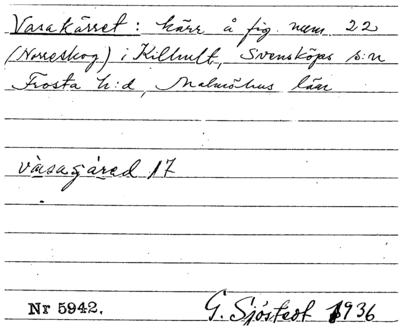 Vasakärret: kärr å fig. num. 22
(Norreskog) i Kilhult, Svensköps s:n
Frosta h:d, Malmöhus län
vàsagàred 17
Nr 5942.
G. Sjöstedt 1936